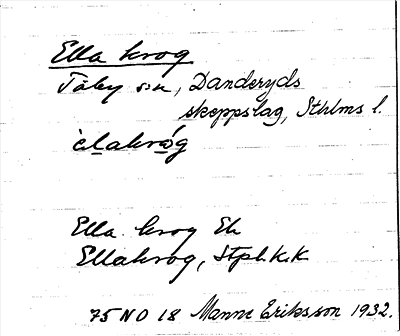 Ella krog
Täby sn, Danderyds
skeppslag, Sthlms l.
èlakróg
Ella krog Ek
Ellakrog, Stpl. K.K
75 NO 18 Manne Eriksson 1932.